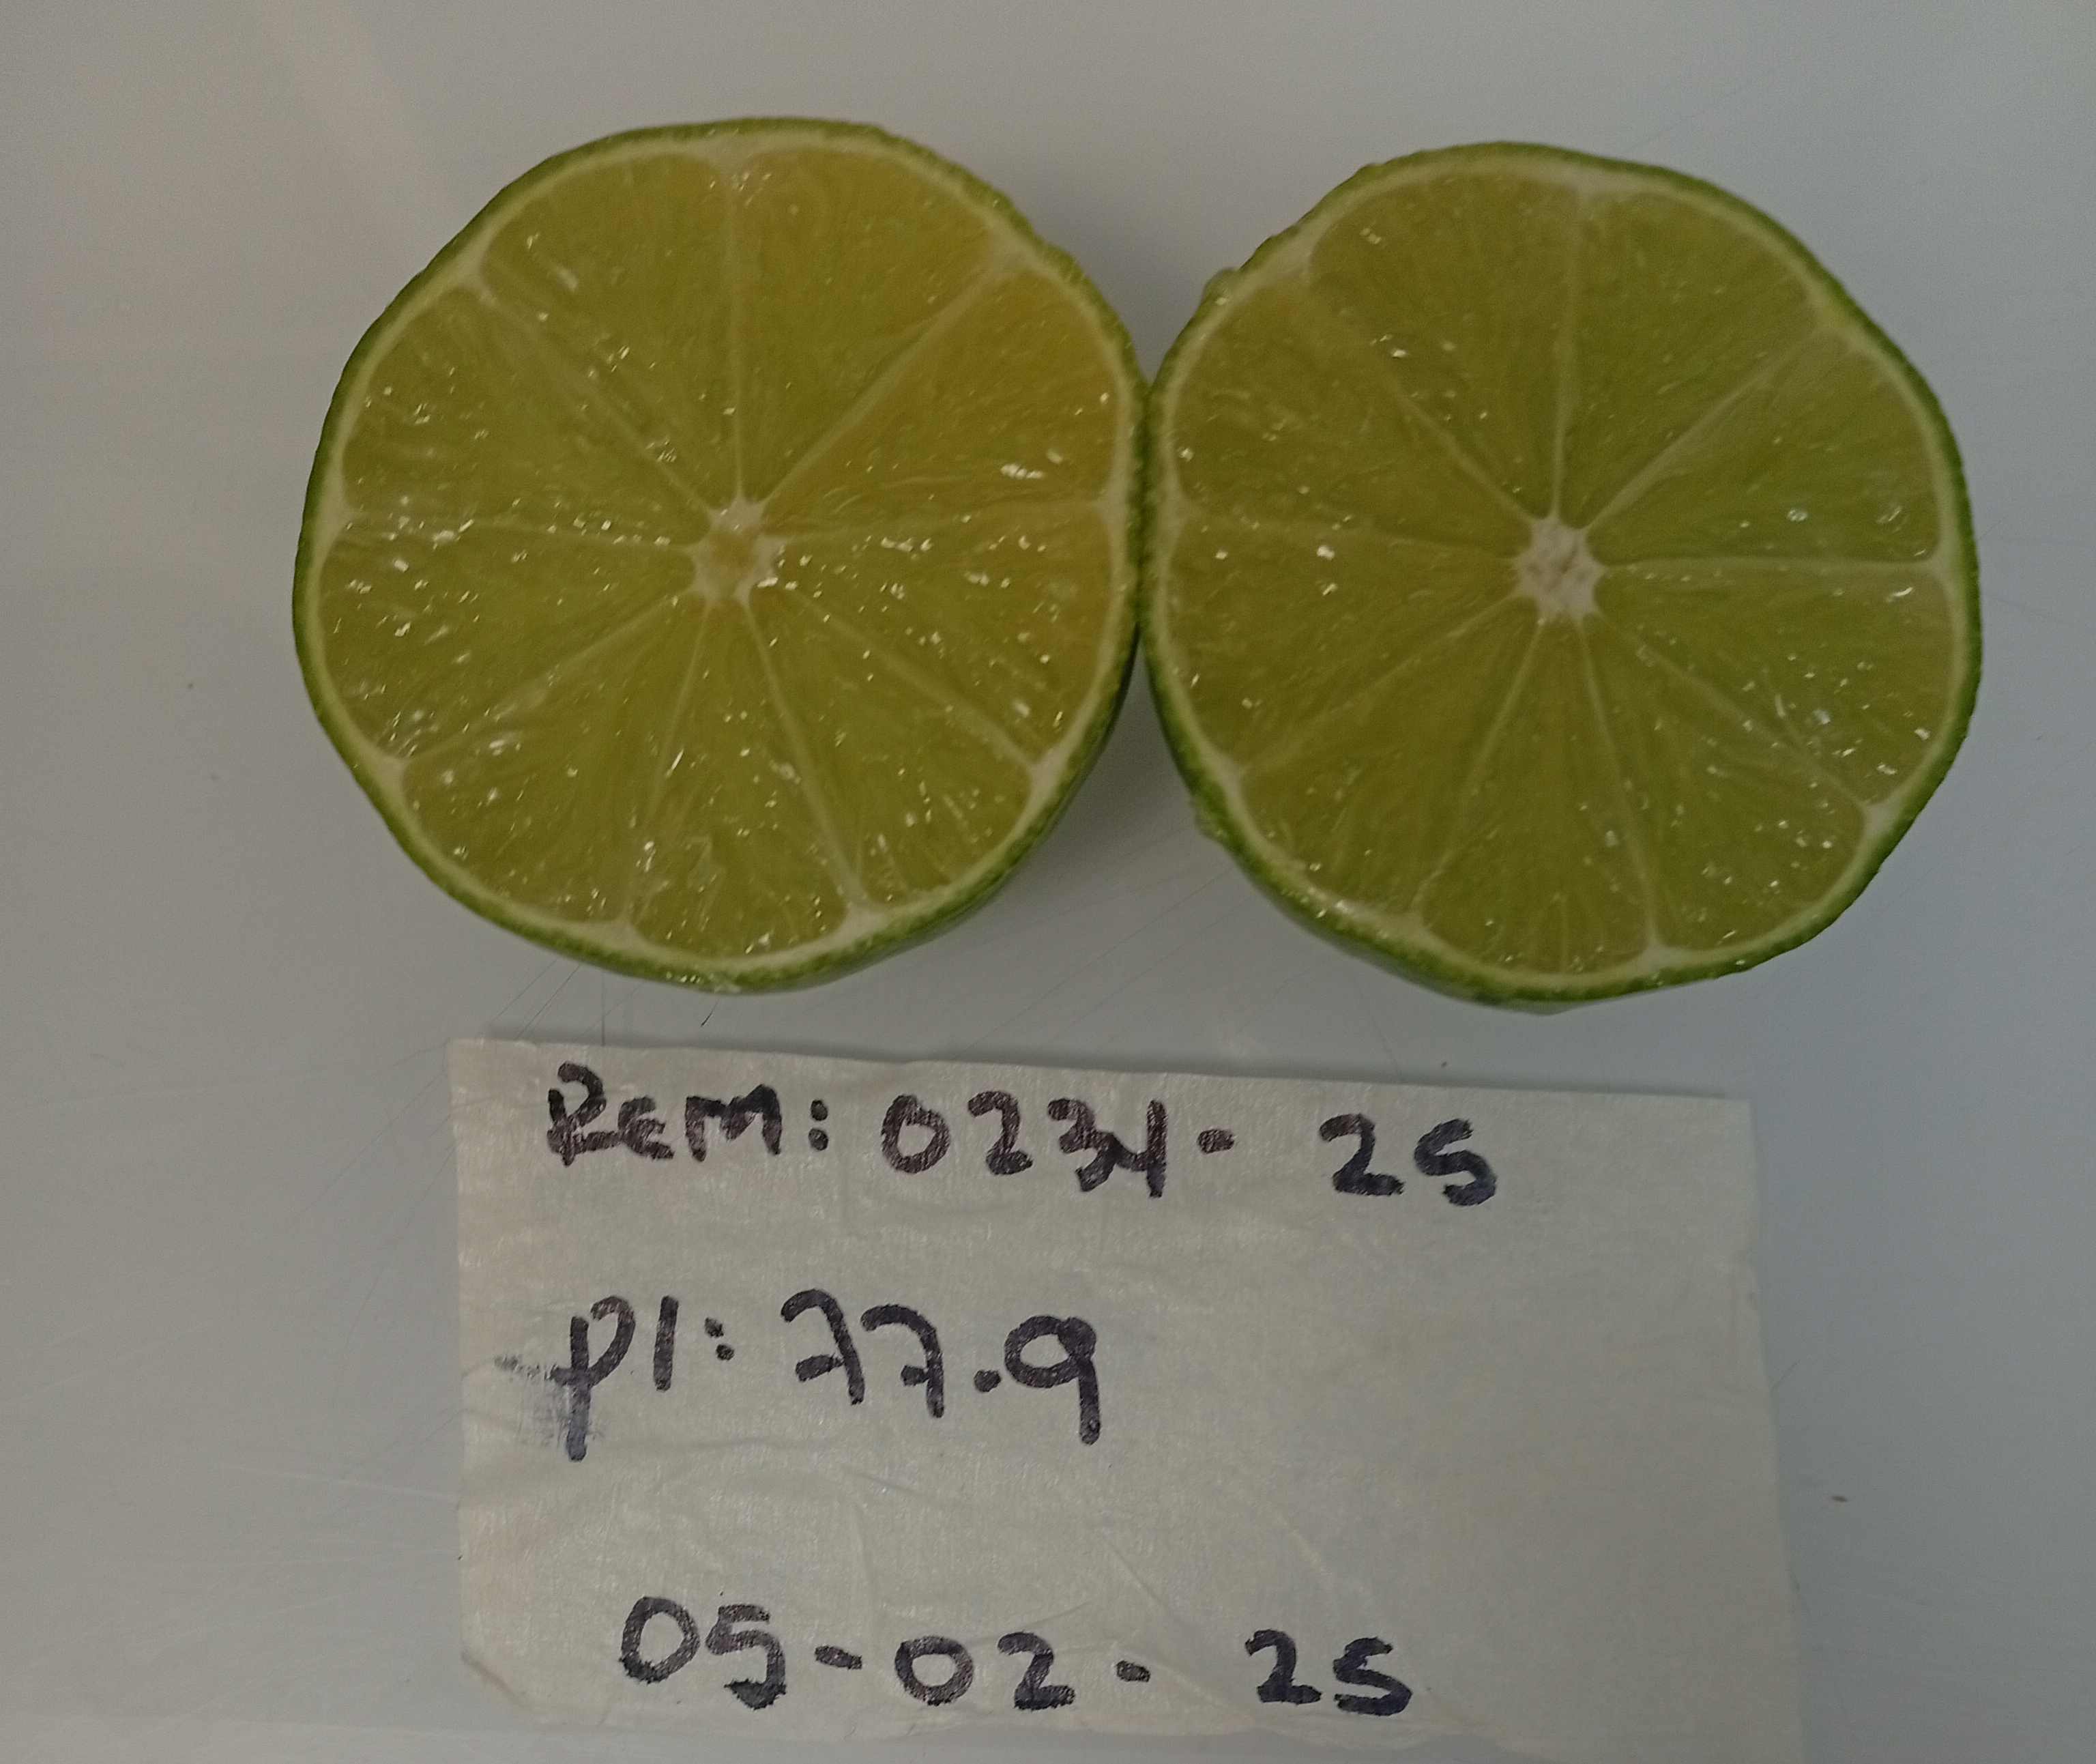 Rem: 0234- 25
p1: 77.9
05-02- 25